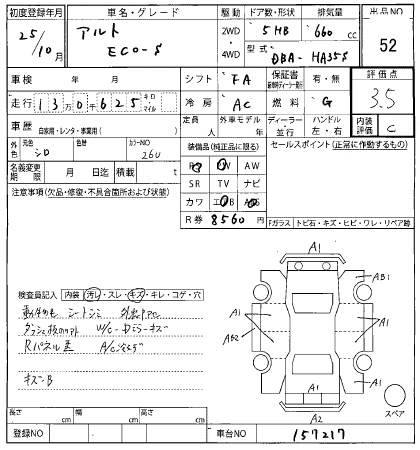 初度登録年月 車名・グレード 駆動 ドア数・形状 排気量 出品NO
25/10月 アルト ECO-S 2WD ・ 4WD 5HB 660 cc 52
型式 DBA- HA35S
車検 年 月 シフト FA 保証書 有・無 評価点
走行 13万0千625 キロ・マイル 冷房 AC 燃料 G 3.5
車歴 自家用・レンタ・事業用( ) 定員 人 外車モデル 年 ディーラー 並行 ハンドル 左・右 内装評価 C
外色 元色 シロ 色替 カラーNO 26U 装備品(純正品に限る) セールスポイント(正常に作動するもの)
名義変更期限 月 日迄 積載 t PS PW AW
注意事項(欠品・修復・不具合箇所および状態) SR TV ナビ
カワ エアB ABS
R券 8560 円
Fガラス トビ石・キズ・ヒビ・ワレ・リペア跡
A1
A1 AB1
検査員記入 内装 汚れ・スレ・キズ・キレ・コゲ・穴
シートシミ
A1 AB2 A1 A1
ダッシュ
Rパネル
キズB
A1 A1 A1
A2
スペア
長さ cm 幅 cm 高さ cm
登録NO 車台NO 157217